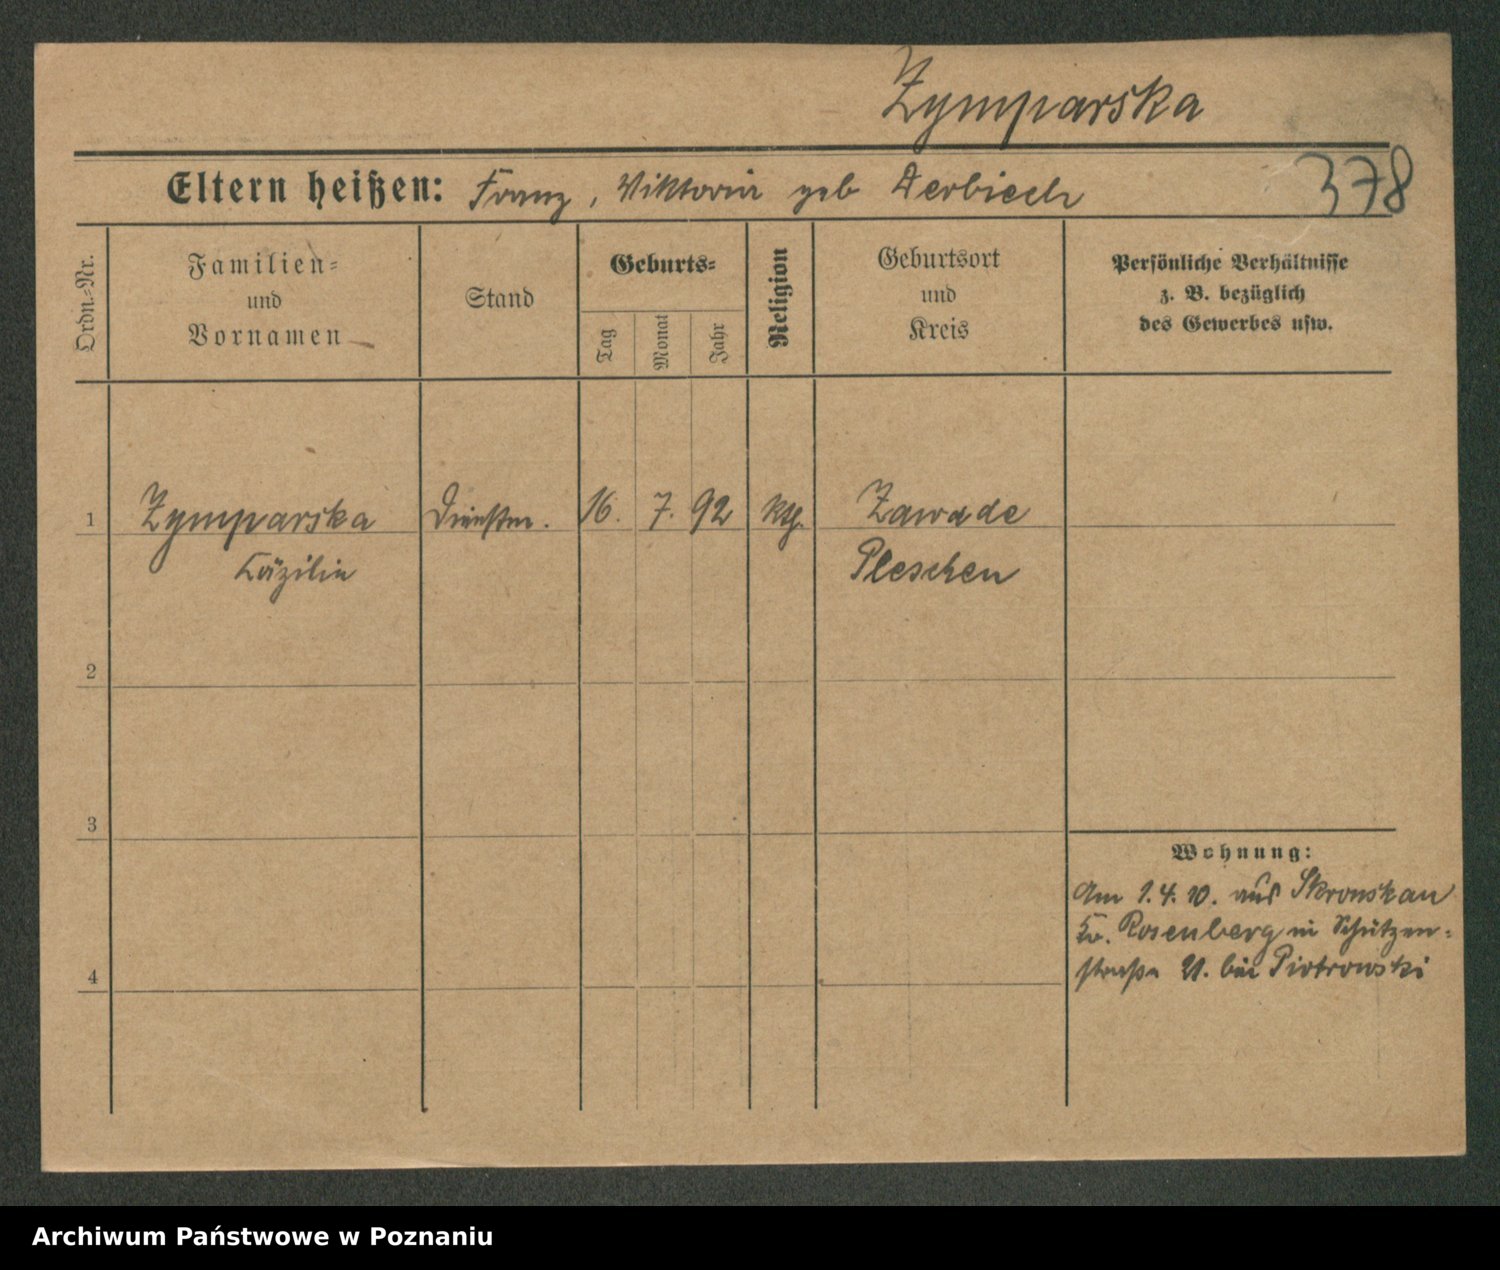 Zymparska
Eltern heißen: Franz, Viktoria geb Derbiech
378
Ordn.-Nr.
Familien-
und
Vornamen
Stand
Geburts-
Tag
Monat
Jahr
Religion
Geburtsort
und
Kreis
Persönliche Verhältnisse
z. B. bezüglich
des Gewerbes usw.
1 Zymparska Dienstm. 16. 7. 92 kth. Zawade
Cäzilie Pleschen
2
3
Wohnung:
Am 1.4.10. aus Skronskau
Kr. Rosenberg in Schützen-
straße 21. bei Piotrowski
4
Archiwum Państwowe w Poznaniu